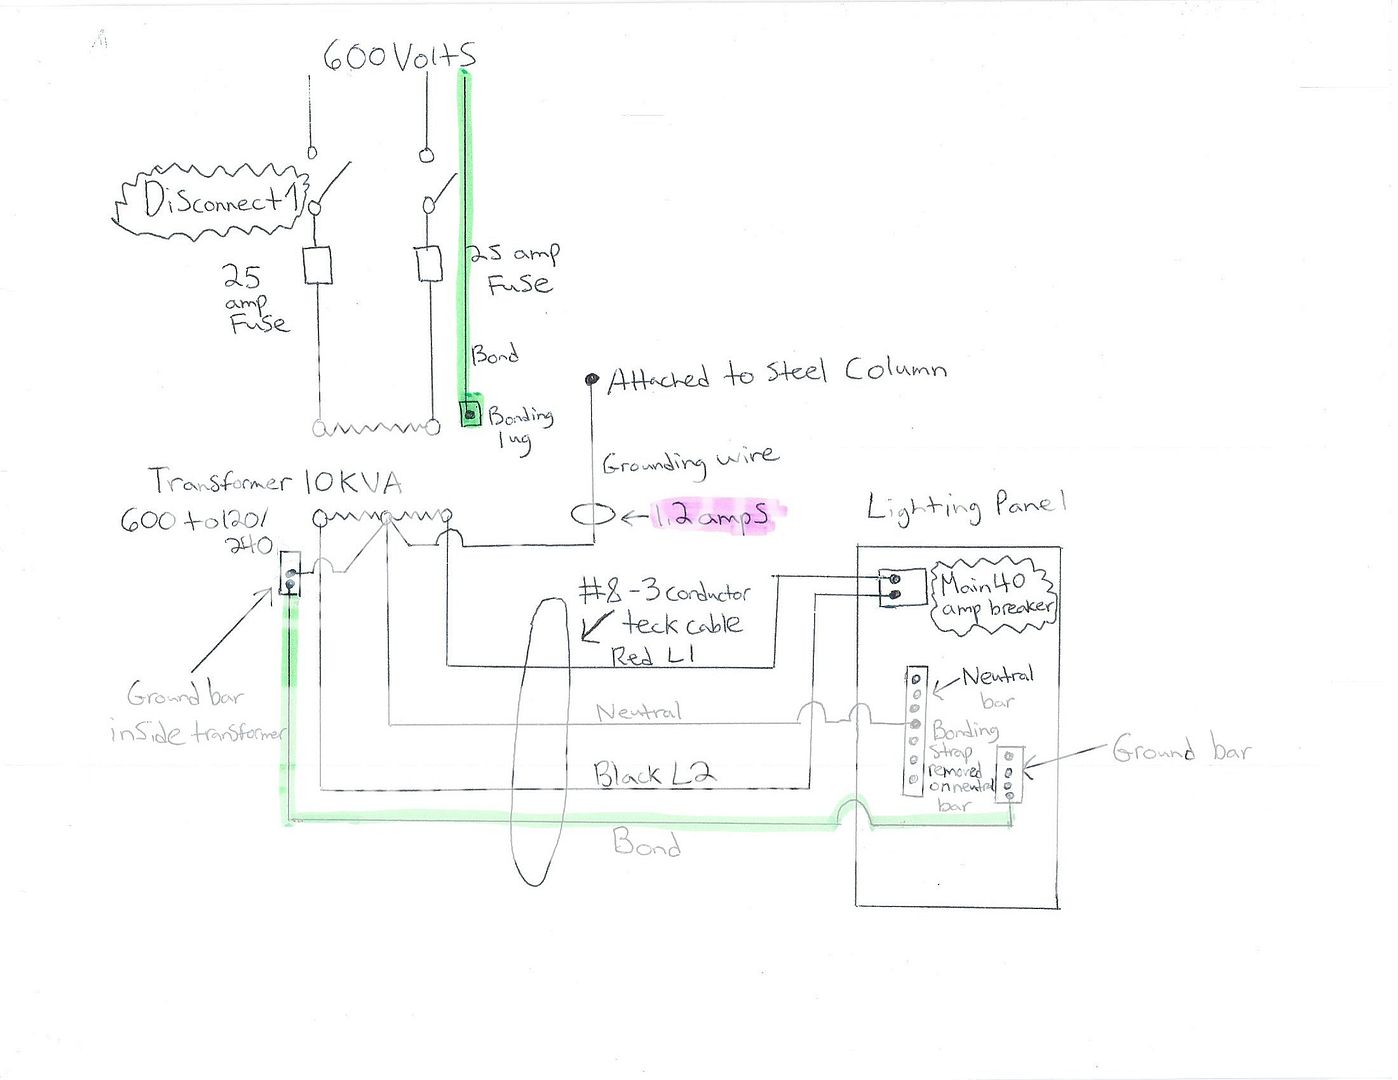 600 Volts
Disconnect 1
25
amp
Fuse
25 amp
Fuse
Bond
Bonding
lug
Attached to Steel Column
Grounding wire
1.2 amps
Transformer 10KVA
600 to 120/
240
Lighting Panel
#8-3 conductor
teck cable
Red L1
Main 40
amp breaker
Ground bar
inside transformer
Neutral
Neutral
bar
Bonding
Strap
removed
on neutral
bar
Ground bar
Black L2
Bond